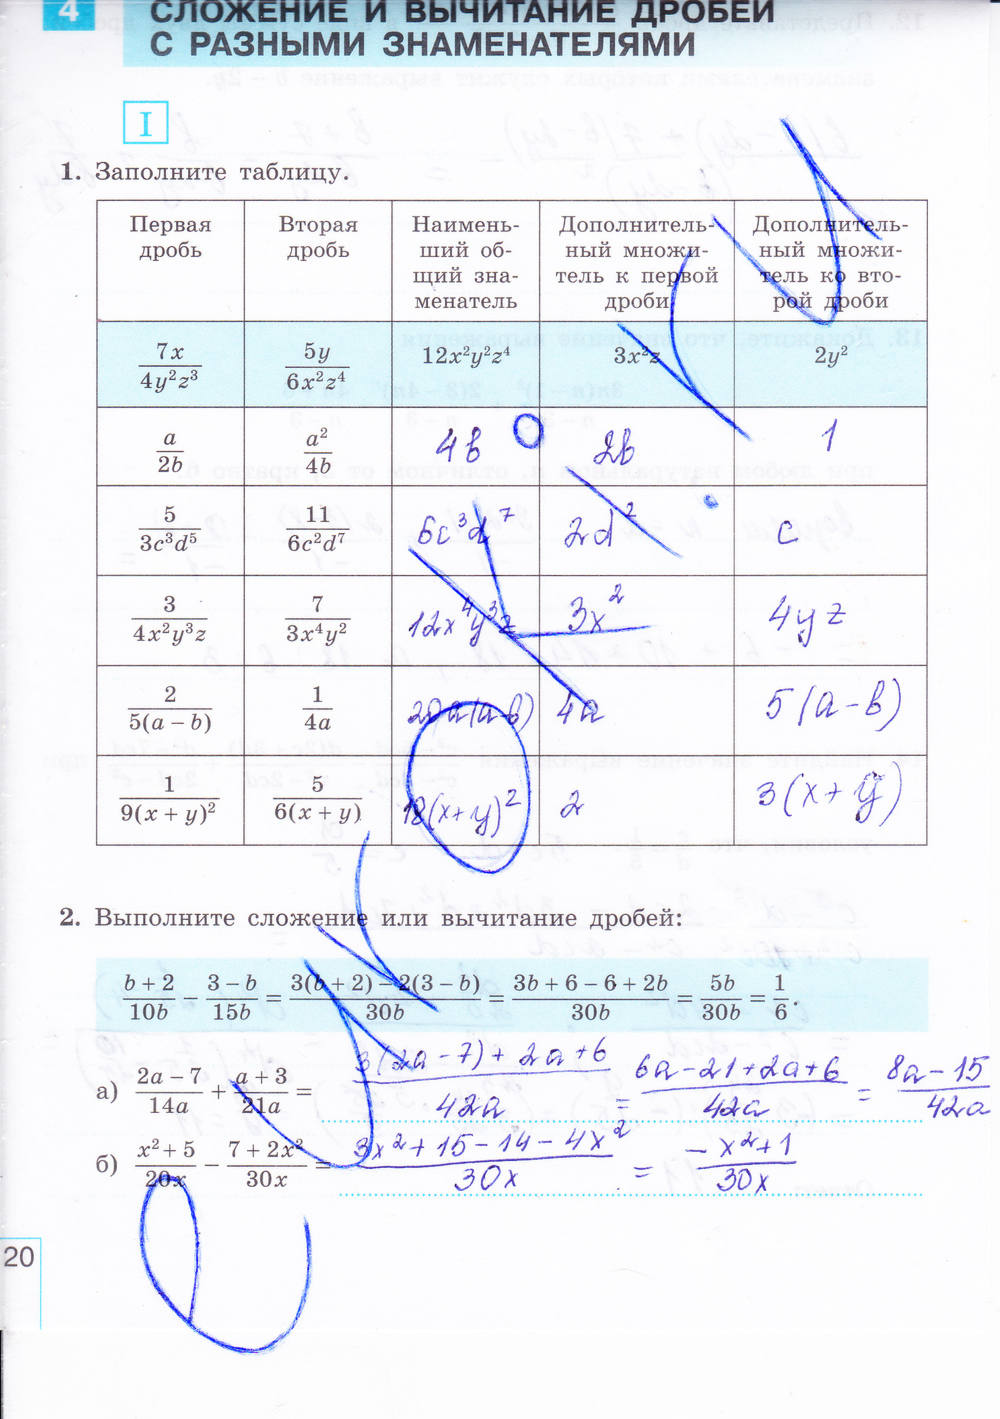 4 СЛОЖЕНИЕ И ВЫЧИТАНИЕ ДРОБЕЙ
С РАЗНЫМИ ЗНАМЕНАТЕЛЯМИ
I
1. Заполните таблицу.
Первая дробь | Вторая дробь | Наимень-ший об-щий зна-менатель | Дополнитель-ный множи-тель к первой дроби | Дополнитель-ный множи-тель ко вто-рой дроби
7x/(4y²z³) | 5y/(6x²z⁴) | 12x²y²z⁴ | 3x²z | 2y²
a/(2b) | a²/(4b) | 4b | 2b | 1
5/(3c³d⁵) | 11/(6c²d⁷) | 6c³d⁷ | 2d² | c
3/(4x²y³z) | 7/(3x⁴y²) | 12x⁴y³z | 3x² | 4yz
2/(5(a − b)) | 1/(4a) | 20a(a−b) | 4a | 5(a−b)
1/(9(x + y)²) | 5/(6(x + y)) | 18(x+y)² | 2 | 3(x+y)
2. Выполните сложение или вычитание дробей:
(b + 2)/(10b) − (3 − b)/(15b) = (3(b + 2) − 2(3 − b))/(30b) = (3b + 6 − 6 + 2b)/(30b) = 5b/(30b) = 1/6.
а) (2a − 7)/(14a) + (a + 3)/(21a) = (3(2a−7)+2a+6)/(42a) = (6a−21+2a+6)/(42a) = (8a−15)/(42a)
б) (x² + 5)/(20x) − (7 + 2x²)/(30x) = (3x²+15−14−4x²)/(30x) = (−x²+1)/(30x)
20